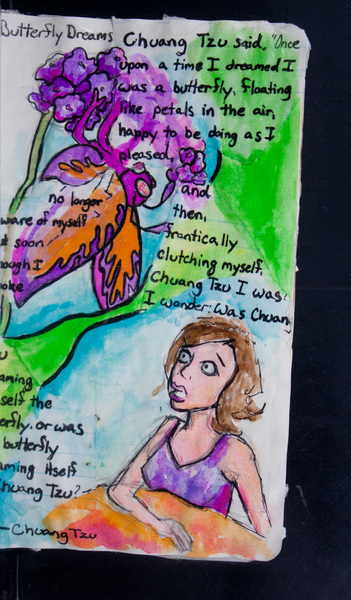 Butterfly Dreams Chuang Tzu said, "Once
upon a time I dreamed I
was a butterfly, floating
like petals in the air,
happy to be doing as I
pleased,
no longer
ware of myself
t soon
hough I
oke
and
then,
frantically
clutching myself,
Chuang Tzu I was!
I wander: Was Chuang
u
aming
self the
erfly, or was
butterfly
aming itself
Chuang Tzu?"
-Chuang Tzu